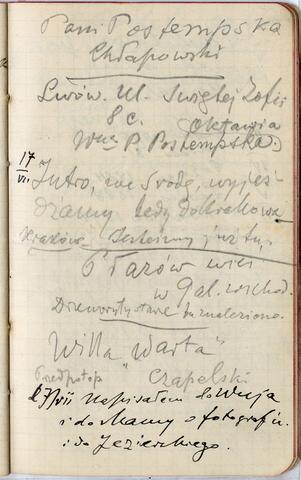 Pani Postempska
Chłapowski
Lwów. Ul. Świętej Zofii
8 c. Oktawia
Wna P. Postempska.
17
VII Jutro, we środę, wyjeż-
dżamy tedy do Krakowa
Kraków. Jesteśmy już tu.
Płazów wieś
w Gal. wschod.
Drzeworyty stare tu znaleziono.
Willa "Warta"
Przedpotop Czapelski
27/VII Napisałem do Wuja
i do Mamy o fotografii.
i do Jezierskiego.